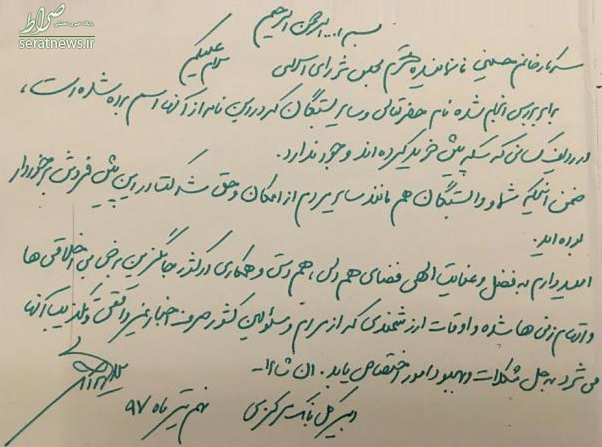 صراط
پایگاه خبری تحلیلی
seratnews.ir
بسم ا... الرحمن الرحیم
سرکار خانم حسینی نماینده محترم مجلس شورای اسلامی
سلام علیکم
برابر بررسی انجام شده نام حضرتعالی و سایر بستگان که در این نامه از آنها اسم برده شده است،
در ردیف کسانی که سکه پیش خرید کرده اند وجود ندارد.
ضمن اینکه شما و وابستگان هم مانند سایر مردم از امکان و حق شرکت در این پیش فروش برخوردار
بوده اید.
امیدوارم به فضل و عنایت الهی فضای هم دلی، هم دستی و همکاری در کشور جایگزین برخی بی اخلاقی ها
و اتهام زنی ها شده و اوقات ارزشمندی که از مردم و مسئولین کشور صرف اخبار غیر واقعی و تکذیب آنها
می شود به حل مشکلات و بهبود امور اختصاص یابد. ان شاءا...
دبیر کل بانک مرکزی
نهم تیر ماه ۹۷